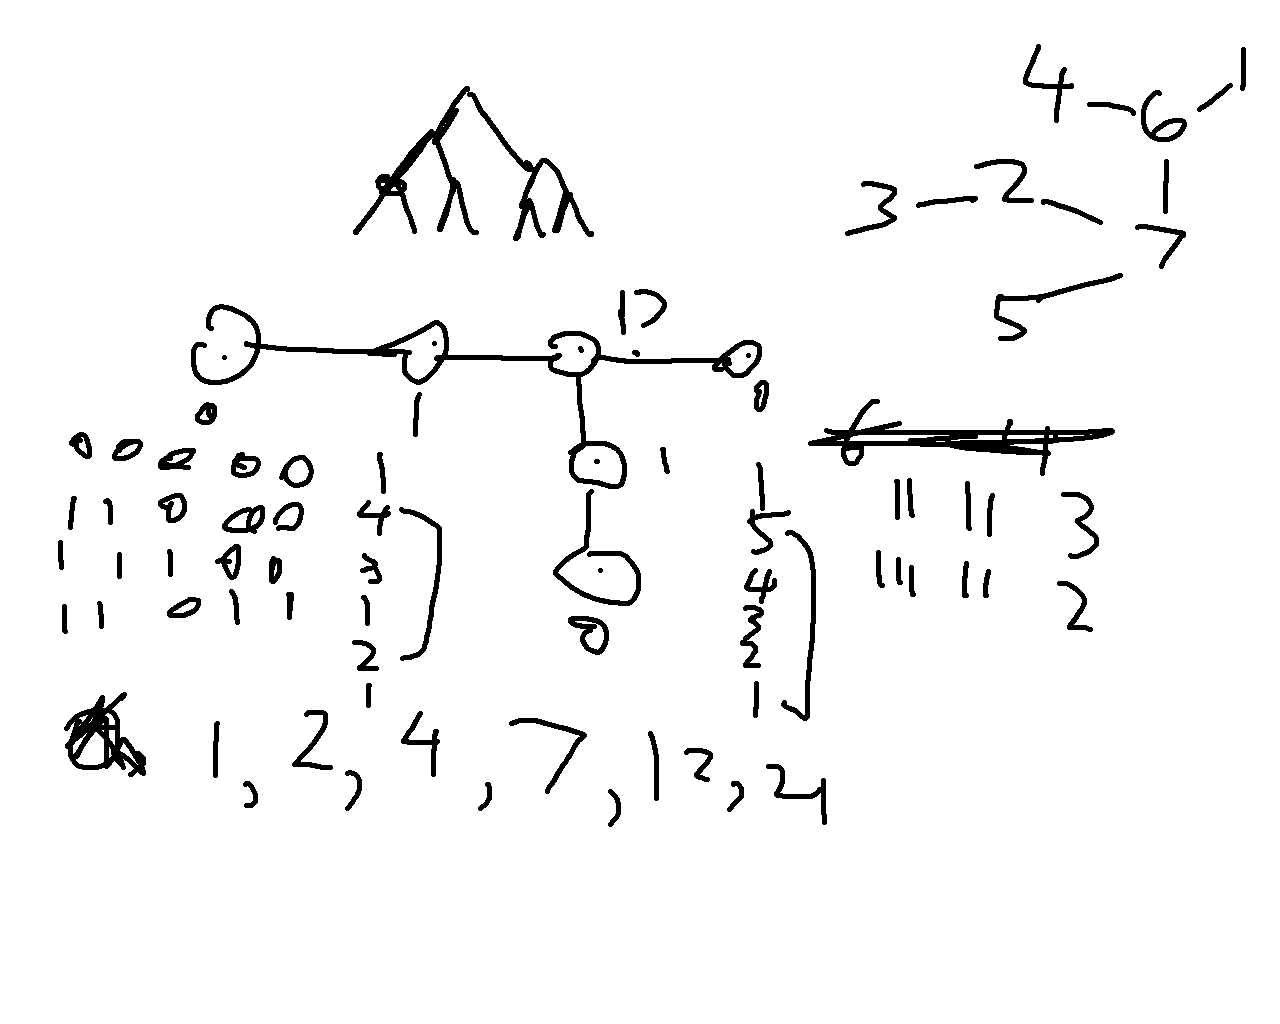 4 - 6 - 1
3 - 2 - 7
5
0 1 0
0 0 0 0 0 1
1 1 0 0 0 4
1 1 1 0 0 3
1 1 0 1 1 1
2
1
1
0
1
5
4
3
2
1
11 11 3
111 11 2
1, 2, 4, 7, 12, 24